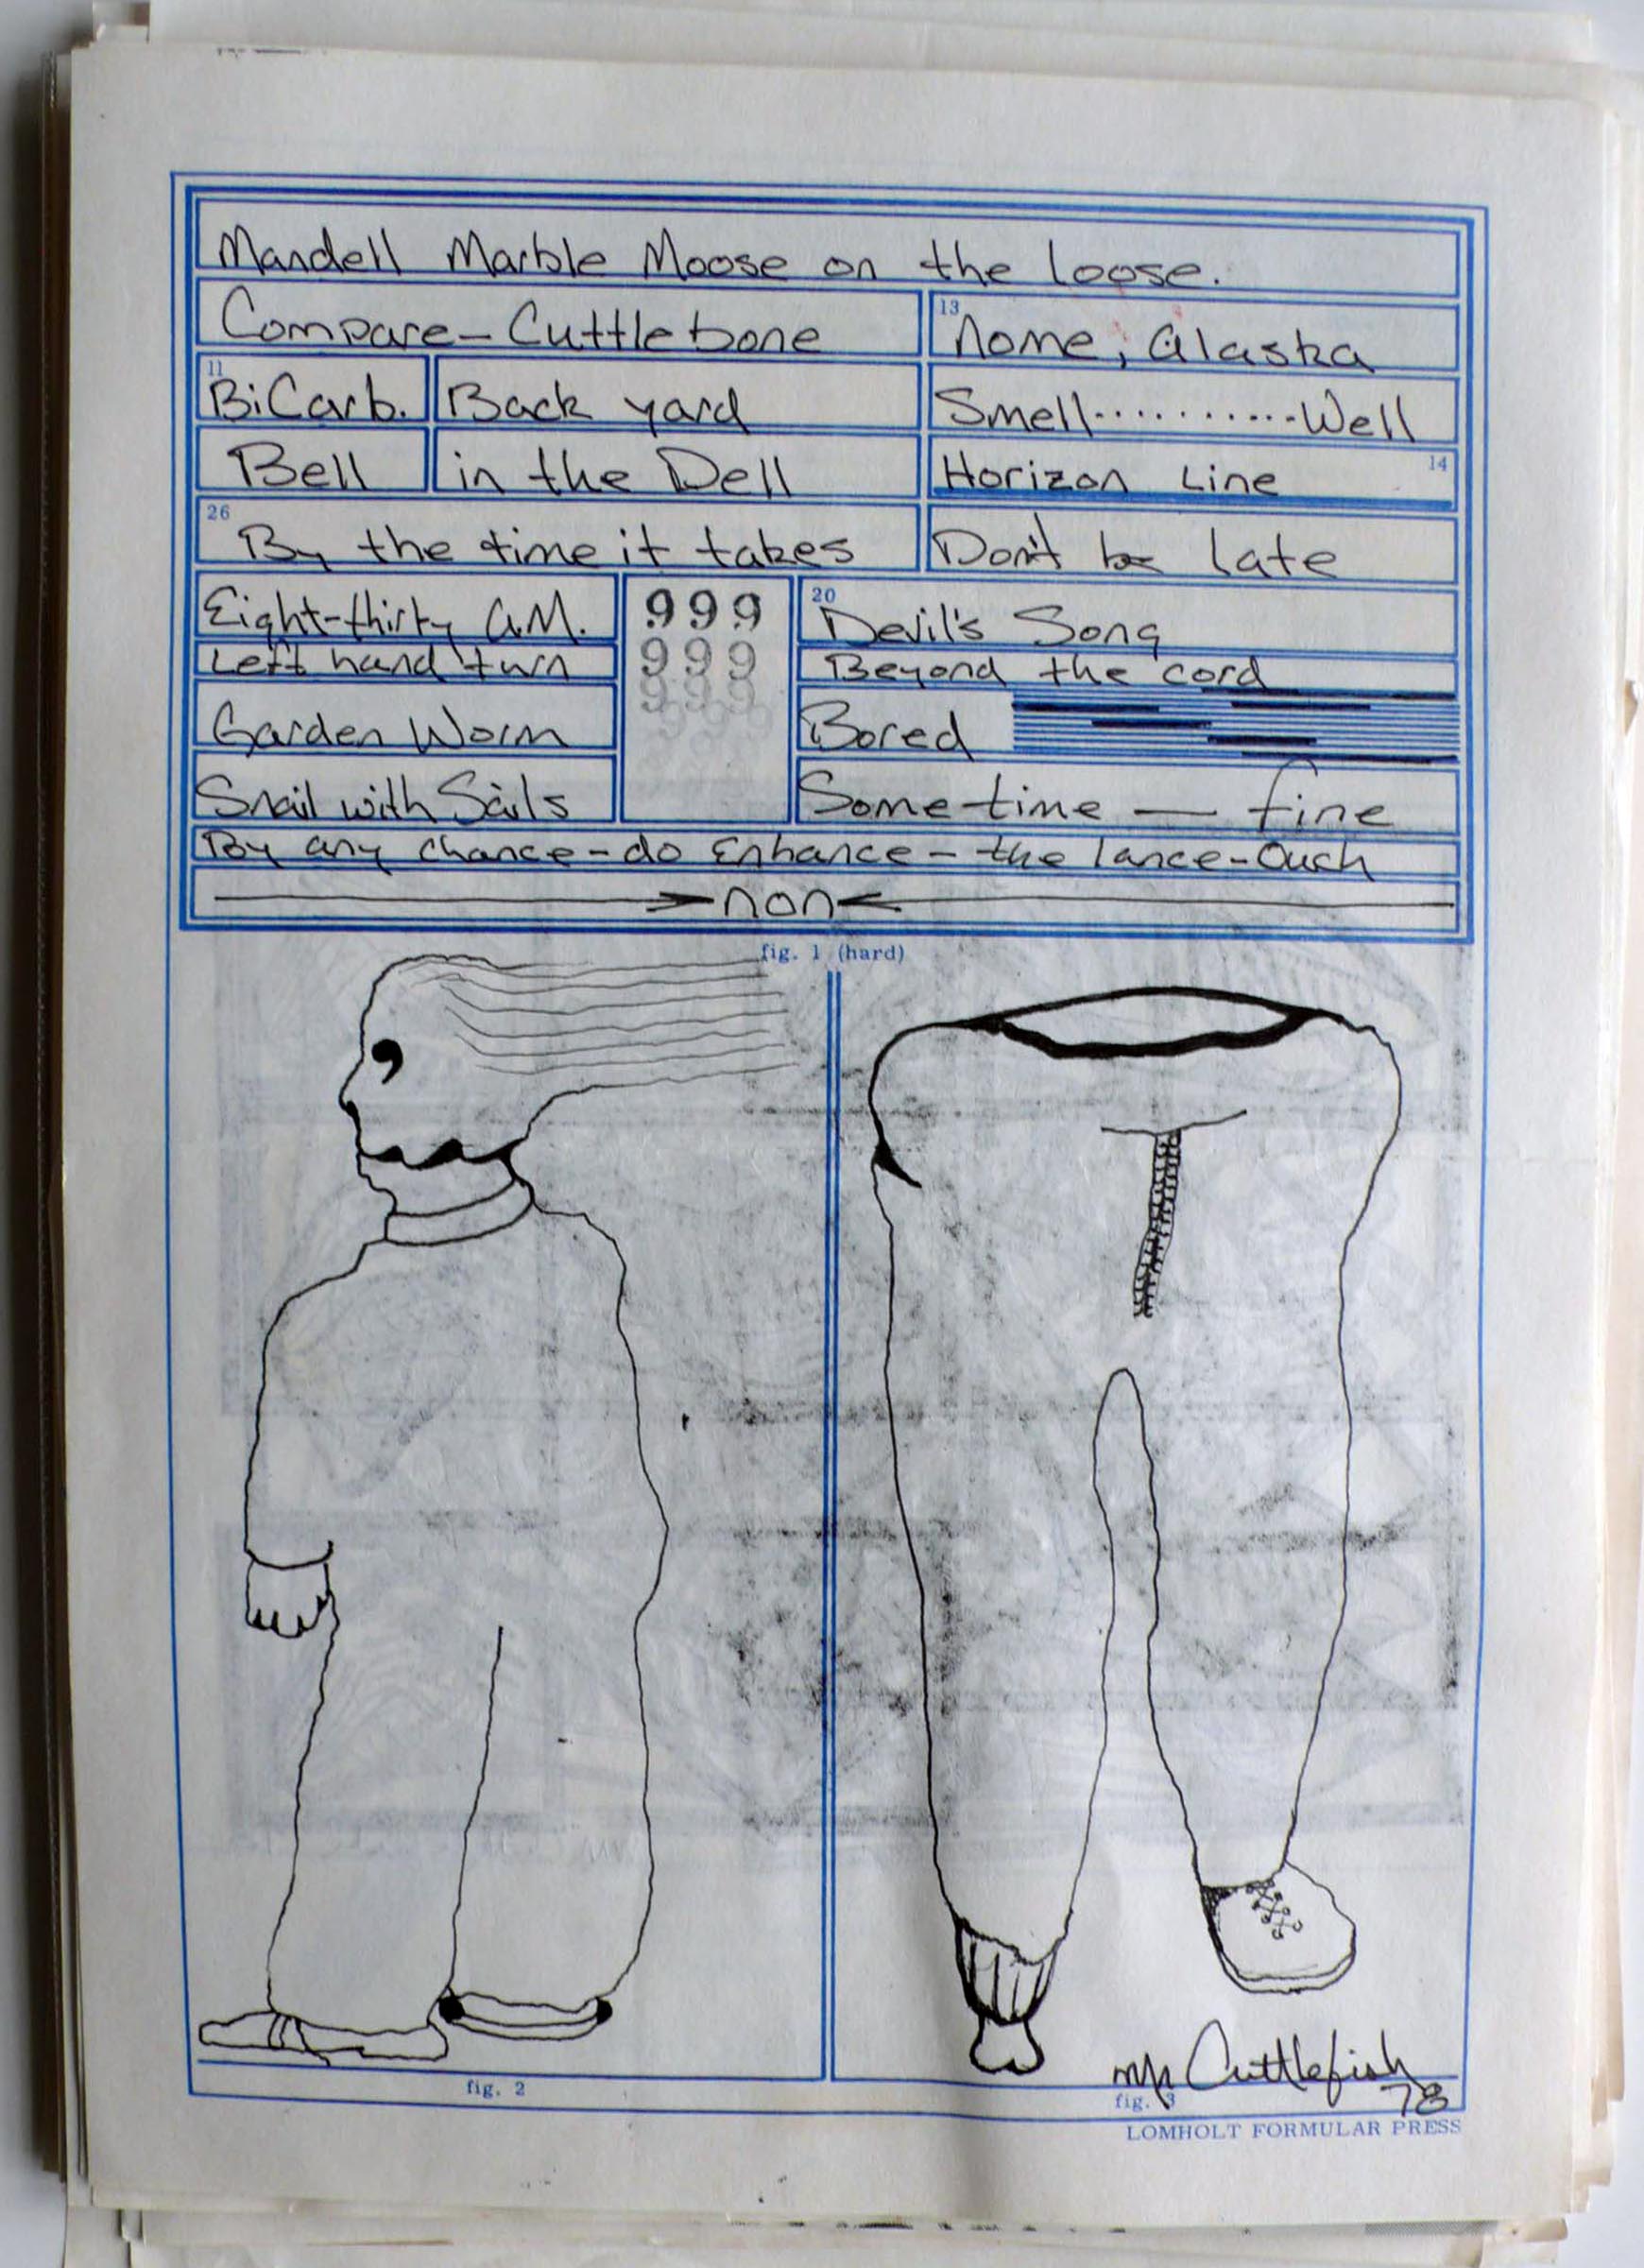 Mandell Marble Moose on the loose.
Compare - Cuttlebone
13
Nome, Alaska
11
BiCarb.
Back yard
Smell..........Well
Bell
in the Dell
Horizon Line
14
26
By the time it takes
Don't be late
Eight-thirty A.M.
999
20
Devil's Song
Left hand turn
999
Beyond the cord
999
999
Garden Worm
Bored
Snail with Sails
Sometime — fine
By any chance - do Enhance - the lance - Ouch
non
fig. 1 (hard)
Cuttlefish
78
fig. 2
fig. 3
LOMHOLT FORMULAR PRESS